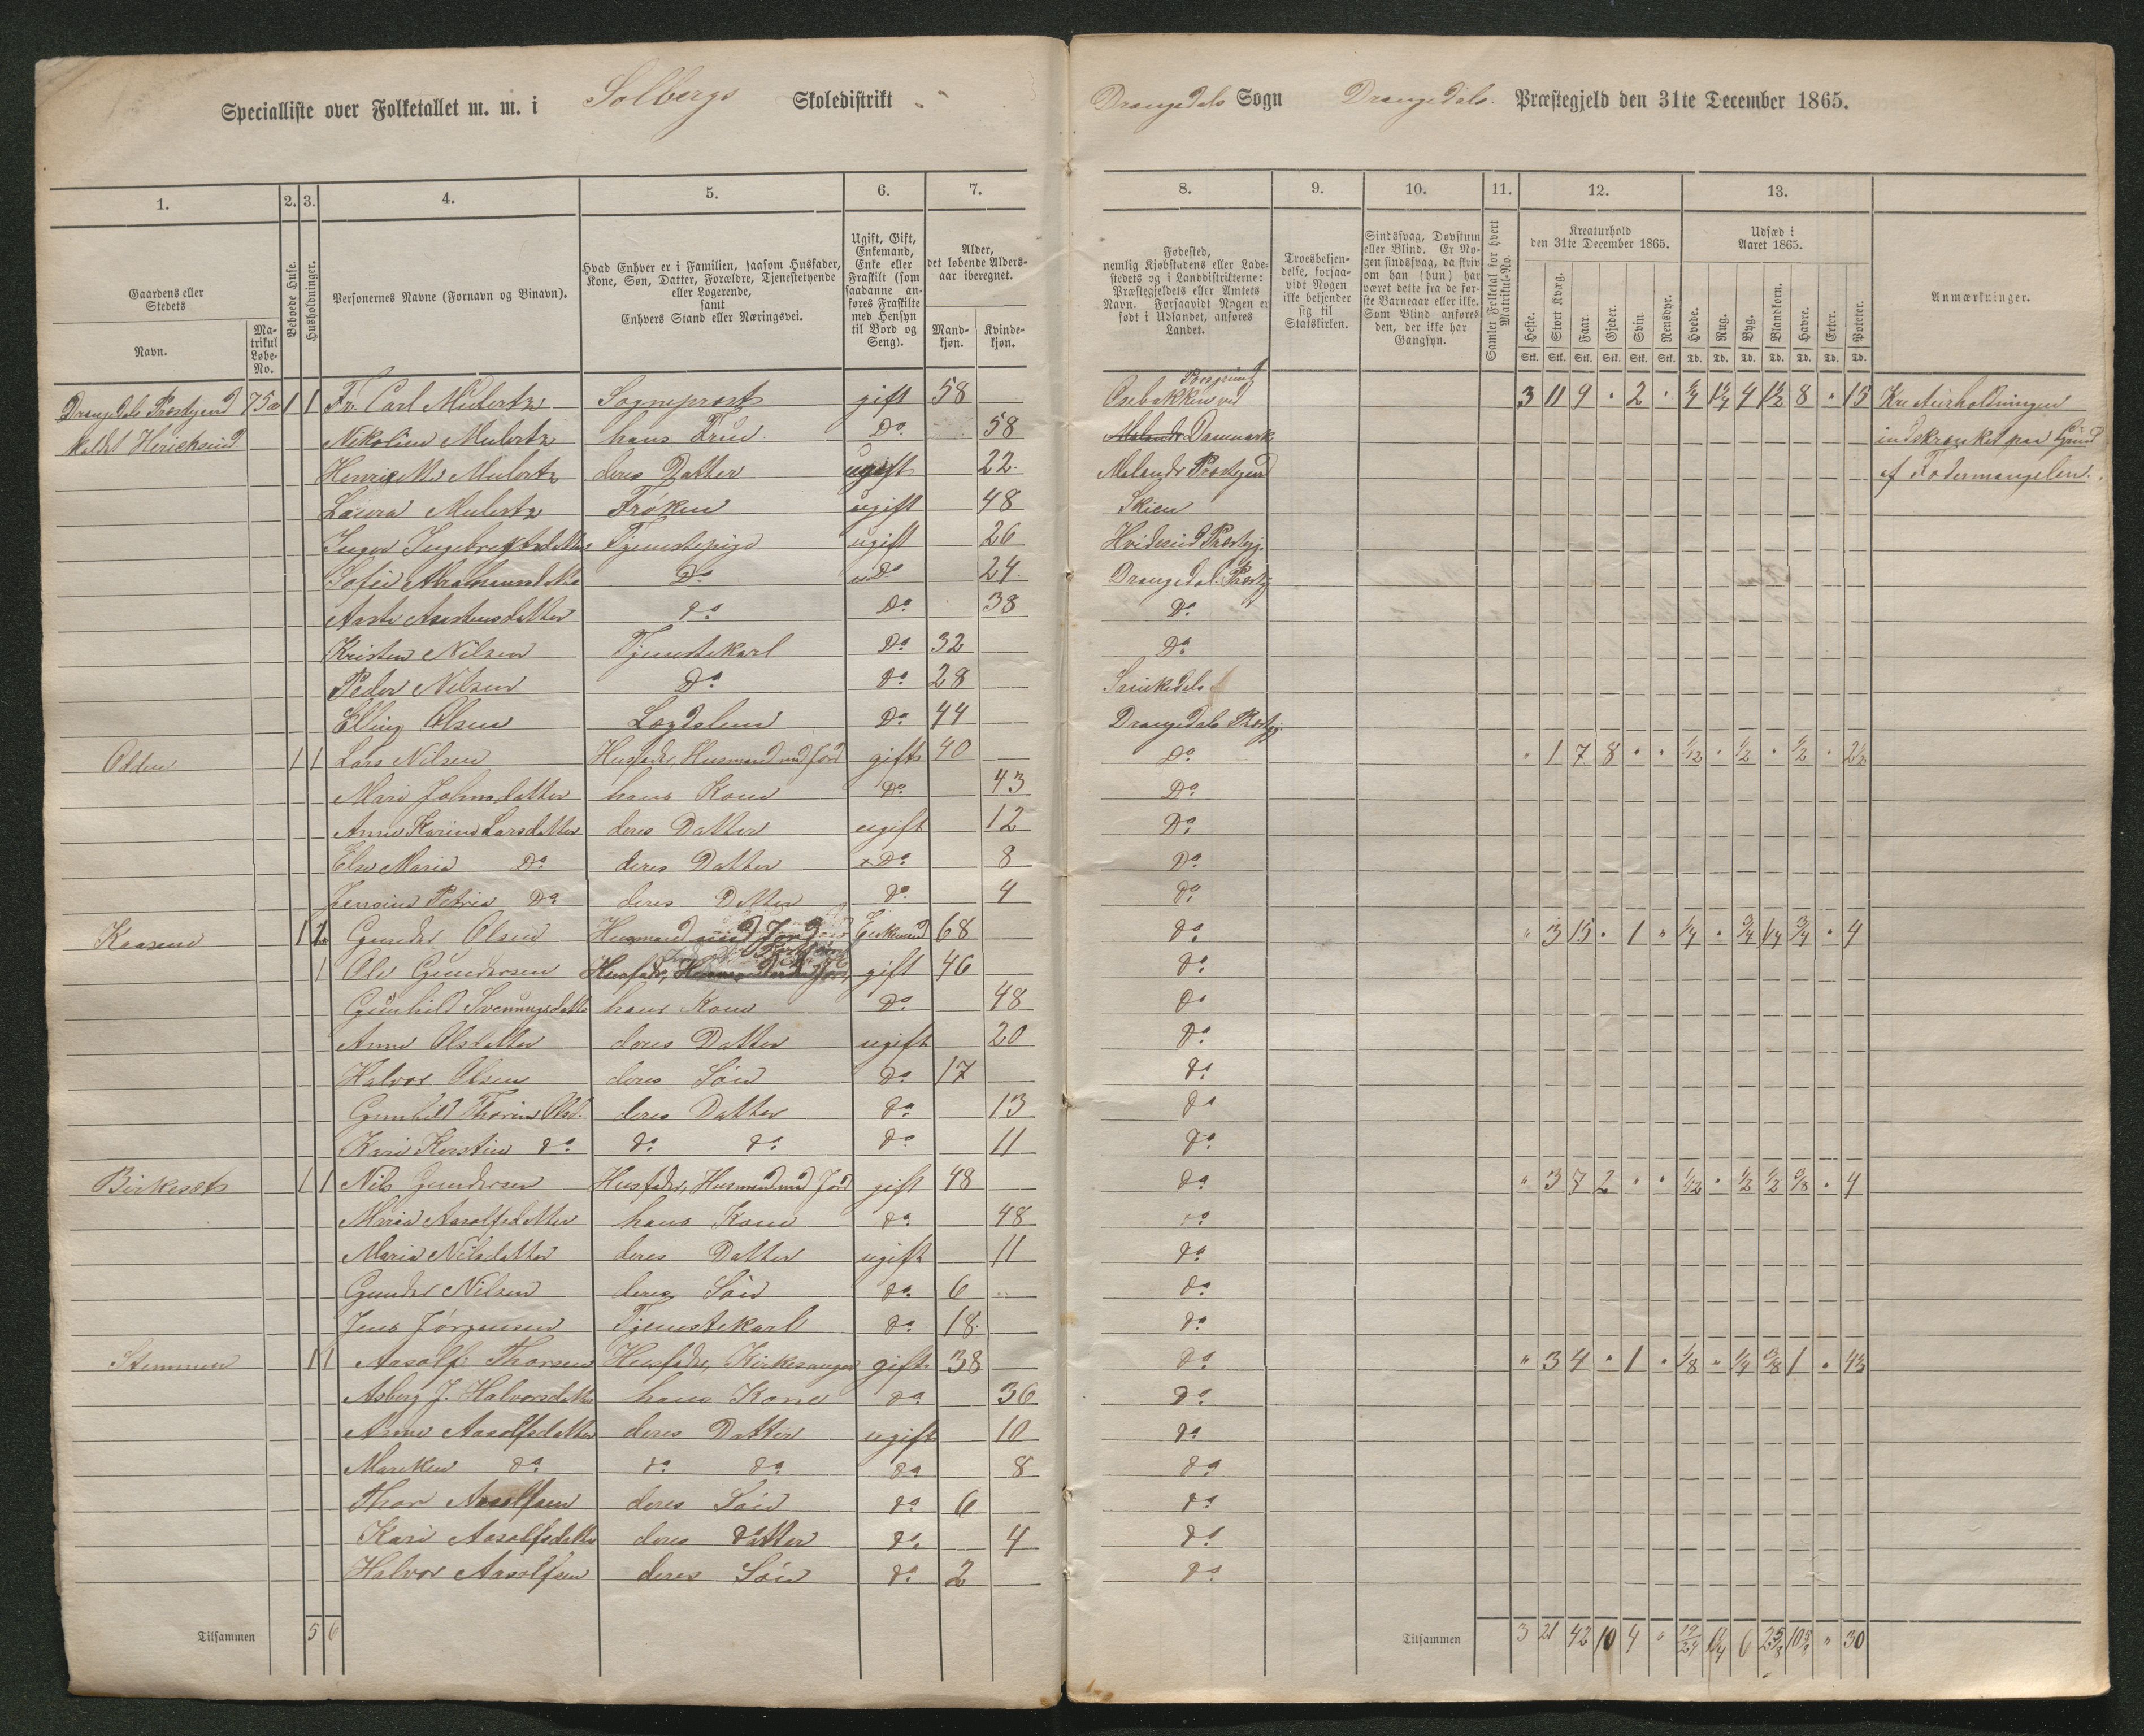 Specialliste over Folketallet m. m. i Solbergs Skoledistrikt Drangedals Sogn Drangedals Præstegjeld den 31te December 1865.
1. 2. 3. 4. 5. 6. 7. 8. 9. 10. 11. 12. 13.
Gaardens eller Stedets
Navn.
Matrikul Løbe-No.
Beboede Huse.
Husholdninger.
Personernes Navne (Fornavn og Binavn).
Hvad Enhver er i Familien, saasom Husfader, Kone, Søn, Datter, Forældre, Tjenestetyende eller Logerende, samt Enhvers Stand eller Næringsvei.
Ugift, Gift, Enkemand, Enke eller Fraskilt (som saadanne anføres Fraskilte med Hensyn til Bord og Seng).
Alder, det løbende Aldersaar iberegnet.
Mandkjøn. Kvindekjøn.
Fødested, nemlig Kjøbstadens eller Ladestedets og i Landdistrikterne: Præstegjeldets eller Amtets Navn. Forsaavidt Nogen er født i Udlandet, anføres Landet.
Troesbekjendelse, forsaavidt Nogen ikke bekjender sig til Statskirken.
Sindssvag, Døvstum eller Blind. Er Nogen sindssvag, da skriv om han (hun) har været dette fra de første Barneaar eller ikke. Som Blind anføres den, der ikke har Gangsyn.
Samlet Folketal for hvert Matrikul-No.
Kreaturhold den 31te December 1865.
Heste. Stort Kvæg. Faar. Gjeder. Svin. Rensdyr.
Stk. Stk. Stk. Stk. Stk. Stk.
Udsæd i Aaret 1865.
Hvede. Rug. Byg. Blandkorn. Havre. Erter. Poteter.
Td. Td. Td. Td. Td. Td. Td.
Anmærkninger.
Drangedals Præstegaard 75a 1 1 Fr. Carl Mülertz Sogneprest gift 58 Osebakken ved Porsgrund 3 11 9 " 2 " 1/4 1 1/4 4 1 1/2 8 " 15 Kreaturholdningen
kaldt Nikoline Mülertz hans Frue Do 58 Danmark indskrænket paa Grund
Mülertz deres Datter ugift 22 Molands Præstegjeld af Fodermangelen.
Laura Mülertz Frøken ugift 48 Skien
Inger Ingebretsdatter Tjenestepige ugift 26 Hvideseid Præstegj.
Sofie Abrahamsdatter Do Do 24 Drangedal Præstgj
Aaste Aanstensdatter do Do 38 Do
Kristen Nilsen Tjenstekarl Do 32 Do
Peder Nilsen Do do 28 Sauekdals
Elling Olsen Lægdslem Do 44 Drangedals Præstgj.
Odden 1 1 Lars Nilsen Husfader, Husmand med Jord gift 40 Do " 1 7 8 " " 1/12 " 1/2 " 1/2 " 2 1/2
Mari Johnsdatter hans Kone Do 43 Do
Anne Karine Larsdatter deres Datter ugift 12 Do
Else Maria Do deres Datter Do 8 Do
Petrea Do deres Datter do 4 Do
Kaasene 1 1 Gunder Olsen Husmand med Jord Enkemand 68 do " 3 15 " 1 " 1/4 " 3/4 1/4 3/4 " 4
1 Ole Gundersen Husfader, gift 46 do
Gunhild Svennungsdatter hans Kone Do 48 do
Anne Olsdatter deres Datter ugift 20 Do
Halvor Olsen deres Søn Do 17 do
Gunhild Thorine Olsd. deres Datter do 13 do
Kari Kerstine do do do do 11 do
Birkesæt 1 1 Nils Gundersen Husfader, Husmand med Jord gift 48 do " 3 7 2 " " 1/12 " 1/2 1/2 3/8 " 4
Maria Aasolfsdatter hans Kone do 48 do
Maria Nilsdatter deres Datter ugift 11 do
Gunder Nilsen deres Søn do 6 do
Jens Jørgensen Tjenstekarl do 18 do
Stemmen 1 1 Aasolf Thorsen Husfader, Kirkesanger gift 38 do " 3 4 " 1 " 1/8 " 1/4 3/8 1 " 4 1/2
Asberg J. Halvorsdatter hans Kone do 36 do
Anne Aasolfsdatter deres Datter ugift 10 do
Mareken do do do do 8 do
Thor Aasolfsen deres Søn do 6 do
Kari Aasolfsdatter deres Datter do 4 do
Halvor Aasolfsen deres Søn do 2 do
Tilsammen 5 6 Tilsammen 3 21 42 10 4 " 19/24 1 1/4 6 2 5/8 10 5/8 " 30